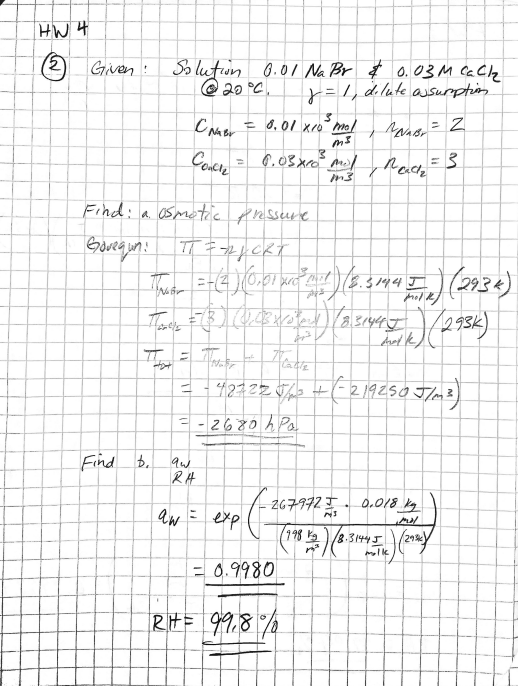 HW 4
② Given: Solution 0.01 NaBr & 0.03 M CaCl2
@ 20 °C. γ = 1, dilute assumption
C NaBr = 0.01 x10³ mol/m³, n NaBr = 2
C CaCl2 = 0.03x10³ mol/m³, n CaCl2 = 3
Find: a. osmotic pressure
Gov eqn: π = -nγCRT
π NaBr = -(2)(0.01 x10³ mol/m³)(8.3144 J/mol K)(293 K)
π CaCl2 = -(3)(0.03x10³ mol/m³)(8.3144 J/mol K)(293K)
π tot = π NaBr + π CaCl2
= -48722 J/m³ + (-219250 J/m³)
= -2680 hPa
Find b. aw
RH
aw = exp (-267972 J/m³ · 0.018 kg/mol / (998 kg/m³)(8.3144 J/mol K)(293K))
= 0.9980
RH = 99.8 %